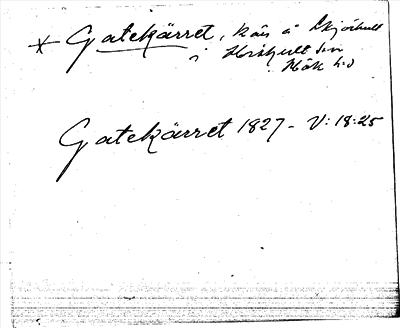 * Gatekärret, kärr å Skjöshult
i Horshult sn
Hök hd
Gatekärret 1827 - V: 18:25